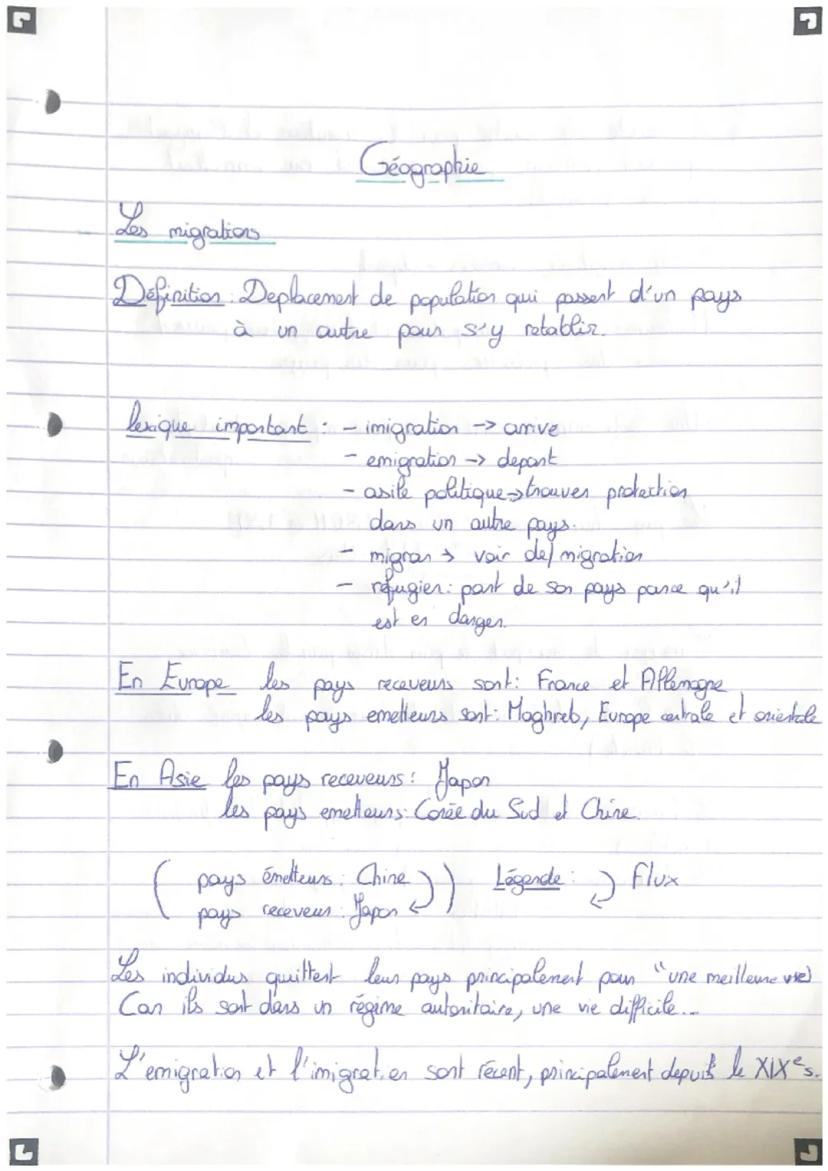 Géographie
Les migrations
Définition : Deplacement de population qui passent d'un pays
à un autre pour s'y retablir.
lexique important : - imigration -> arrive
- emigration -> depart
- asile politique -> trouver protection
dans un autre pays.
- migran -> voir def migration
- réfugier : part de son pays parce qu'il
est en danger.
En Europe les pays receveurs sont : France et Allemagne
les pays emetteurs sont : Maghreb, Europe centrale et orientale
En Asie les pays receveurs : Japon
les pays emetteurs : Corée du Sud et Chine
( pays émetteurs : Chine ) Légende : Flux
pays receveur : Japon
Les individus quittent leur pays principalement pour "une meilleure vie)
Car ils sont dans un régime autoritaire, une vie difficile...
L'emigration et l'imigration sont récent, principalement depuis le XIXe s.